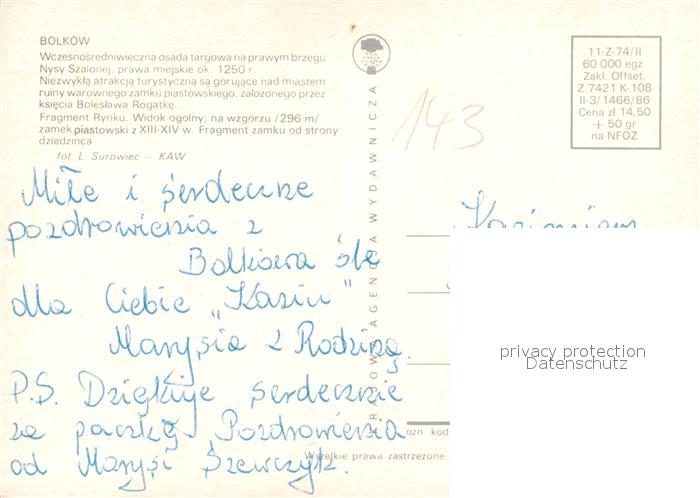 BOLKÓW
Wczesnośredniwieczna osada targowa na prawym brzegu
Nysy Szalonej, prawa miejskie ok. 1250 r.
Niezwykłą atrakcją turystyczną są górujące nad miastem
ruiny warownego zamku piastowskiego, założonego przez
księcia Bolesława Rogatkę.
Fragment Rynku. Widok ogólny; na wzgórzu /296 m/
zamek piastowski z XIII-XIV w. Fragment zamku od strony
dziedzińca
fot. L. Surowiec – KAW
Miłe i serdeczne
pozdrowienia z
Bolkowa śle
dla Ciebie „Kaziu"
Marysia z Rodziną.
P.S. Dziękuję serdecznie
za paczkę Pozdrowienia
od Marysi Szewczyk.
KRAJOWA AGENCJA WYDAWNICZA
143
11-Z-74/II
60 000 egz.
Zakł. Offset.
Z. 7421 K-108
II-3/1466/86
Cena zł 14,50
+ 50 gr
na NFOZ
Kazimierz
privacy protection
Datenschutz
ozn kod
Wszelkie prawa zastrzeżone